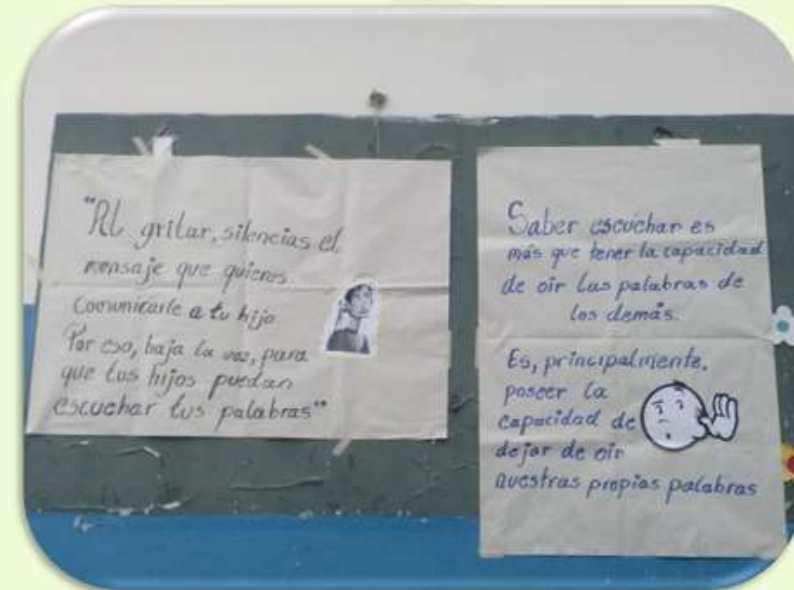 "Al gritar, silencias el
mensaje que quieres
comunicarle a tu hijo
Por eso, baja la voz, para
que tus hijos puedan
escuchar tus palabras"
Saber escuchar es
más que tener la capacidad
de oir las palabras de
los demás.
Es, principalmente,
poseer la
capacidad de
dejar de oir
nuestras propias palabras